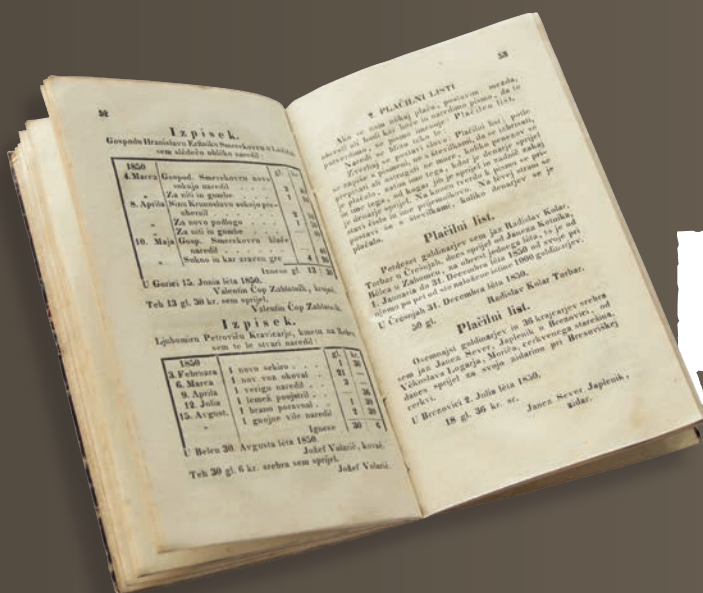 52
Izpisek.
Gospodu Hranislavu
sem sledečo obliko naredil:
1850
gl. kr.
4. Marca Gospod. Smerekovru novo
suknjo naredil
" Za niti in gombe
8. Aprila Sinu Krunoslavu suknjo
" Za novo podlogo
" Za niti in gombe
10. Maja Gosp. Smerekovru hlače
naredil
" Sukno in kar zraven gre 4
Iznese gl. 13 30
U Gorici 15. Junia léta 1850.
Valentin Čop Zablatnik, krojač.
Teh 13 gl. 30 kr. sem sprijel.
Valentin Čop Zablatnik.
Izpisek.
Ljubomiru Petroviču kmetu na
sem te le stvari naredil:
1850 gl. kr.
3. Februara 1 novo sekiro 1 30
6. Marca 1 nov voz okoval 21 —
9. Aprila 1 verigo naredil 3 —
12. Julia 1 lemež poojstril — 36
15. Avgust. 1 brano poravnal 1 30
" 1 gnojne vile naredil 2 30
Ignese 30 6
U Belen 30. Avgusta léta 1850.
Jožef Volarič, kovač.
Teh 30 gl. 6 kr. srebra sem sprijel.
Jožef Volarič.
53
2. PLAČILNI LISTI
Ako se nam nékaj plača, postavim mezda,
obresti ali bodi kar hoče in naredimo pismo, da to
poterdimo, se pismo imenuje: Plačilen list.
Naredi se blizo tako le:
Zverhej se postavi slovo: Plačilni list, potle
se zapiše s pismeni, ne s številkami, da se izbrisati,
pregačati ali ostrugati ne more, koliko penezov se
je plačalo, zatim ime tega, kdor je denarje sprijel
in ime tega, od kogar jih je sprijel in zadnič zakaj
je denarje sprijel. Na koncu tverdo k pismu se pri-
stavi čislo in ime prijemnikovo. Na lévej stran se
postavi še s številkami, koliko denarjev se je
plačalo.
Plačilni list.
Petdeset goldinarjev sem jaz Radislav Kolar,
Torbar u Črešnjah, dnes sprijel od Janeza Konika,
Bôlca u Zabomcu, za obresti jednega léta, to je od
1. Januaria do 31. Decembra léta 1850 od svoje pri
njemu po pet od sto naložene istine 1000 goldinarjev.
U Črešnjah 31. Decembra léta 1850.
50 gl. Radislav Kolar Torbar.
Plačilni list.
Osemnajst goldinarjev in 36 krajcarjev srebra
sem jaz Janez Sever, Japlenik u Brezovici, od
Vékoslava Logarja, Moriča, cerkvenega starešina,
danes sprijel za svojo zidarino pri Brezoviškej
cerkvi.
U Brezovici 2. Julia léta 1850.
18 gl. 36 kr. sr.
Janez Sever Japlenik,
zidar.